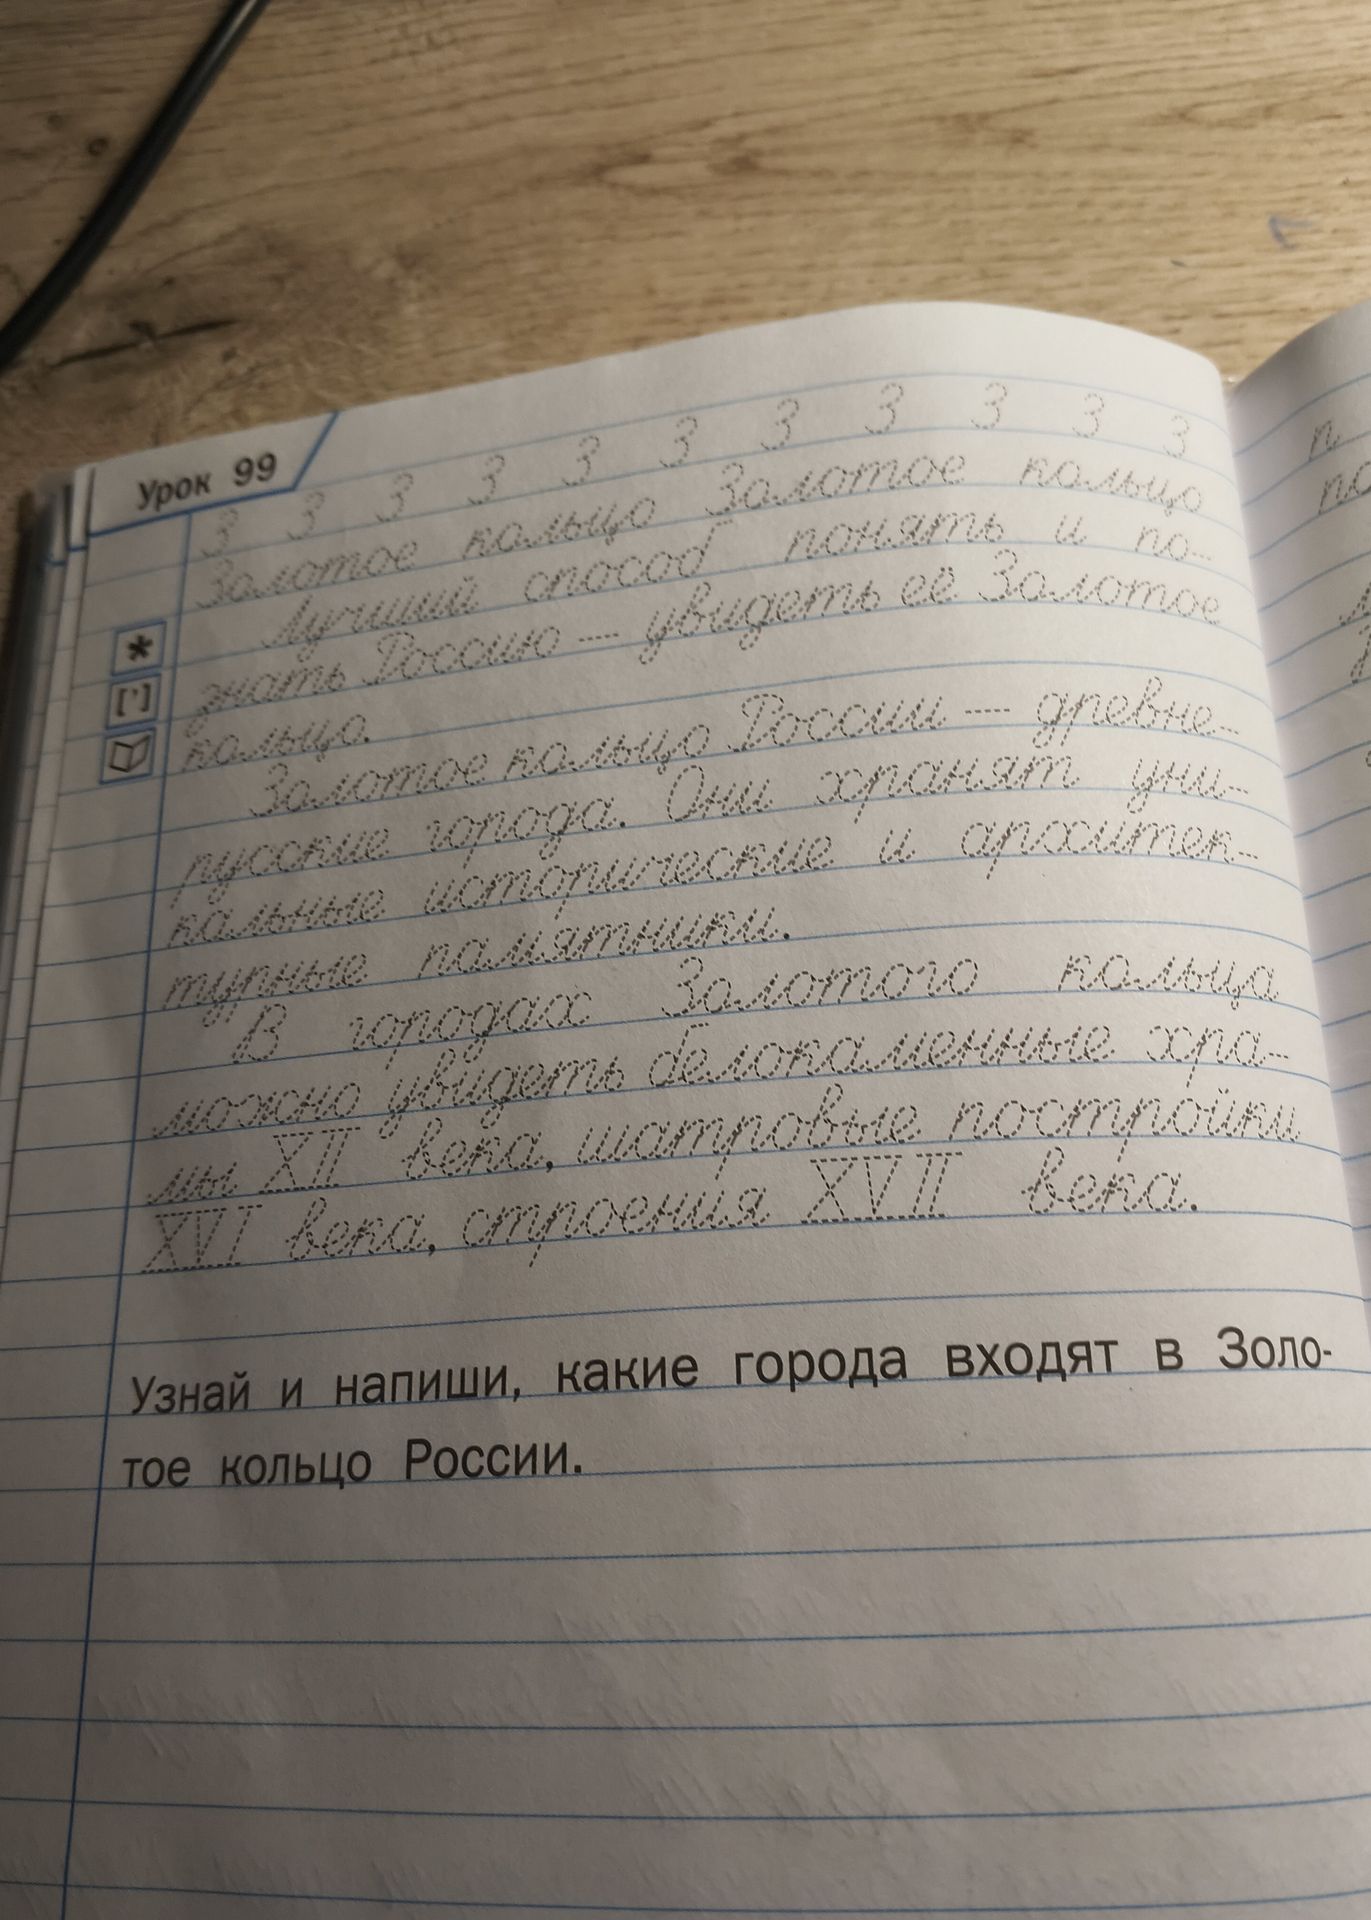 Урок 99
З З З З З З З З З З З
Золотое кольцо Золотое кольцо
Лучший способ понять и по-
знать Россию — увидеть её Золотое
кольцо.
Золотое кольцо России — древне-
русские города. Они хранят уни-
кальные исторические и архитек-
турные памятники.
В городах Золотого кольца
можно увидеть белокаменные хра-
мы XII века, шатровые постройки
XVI века, строения XVII века.
Узнай и напиши, какие города входят в Золо-
тое кольцо России.